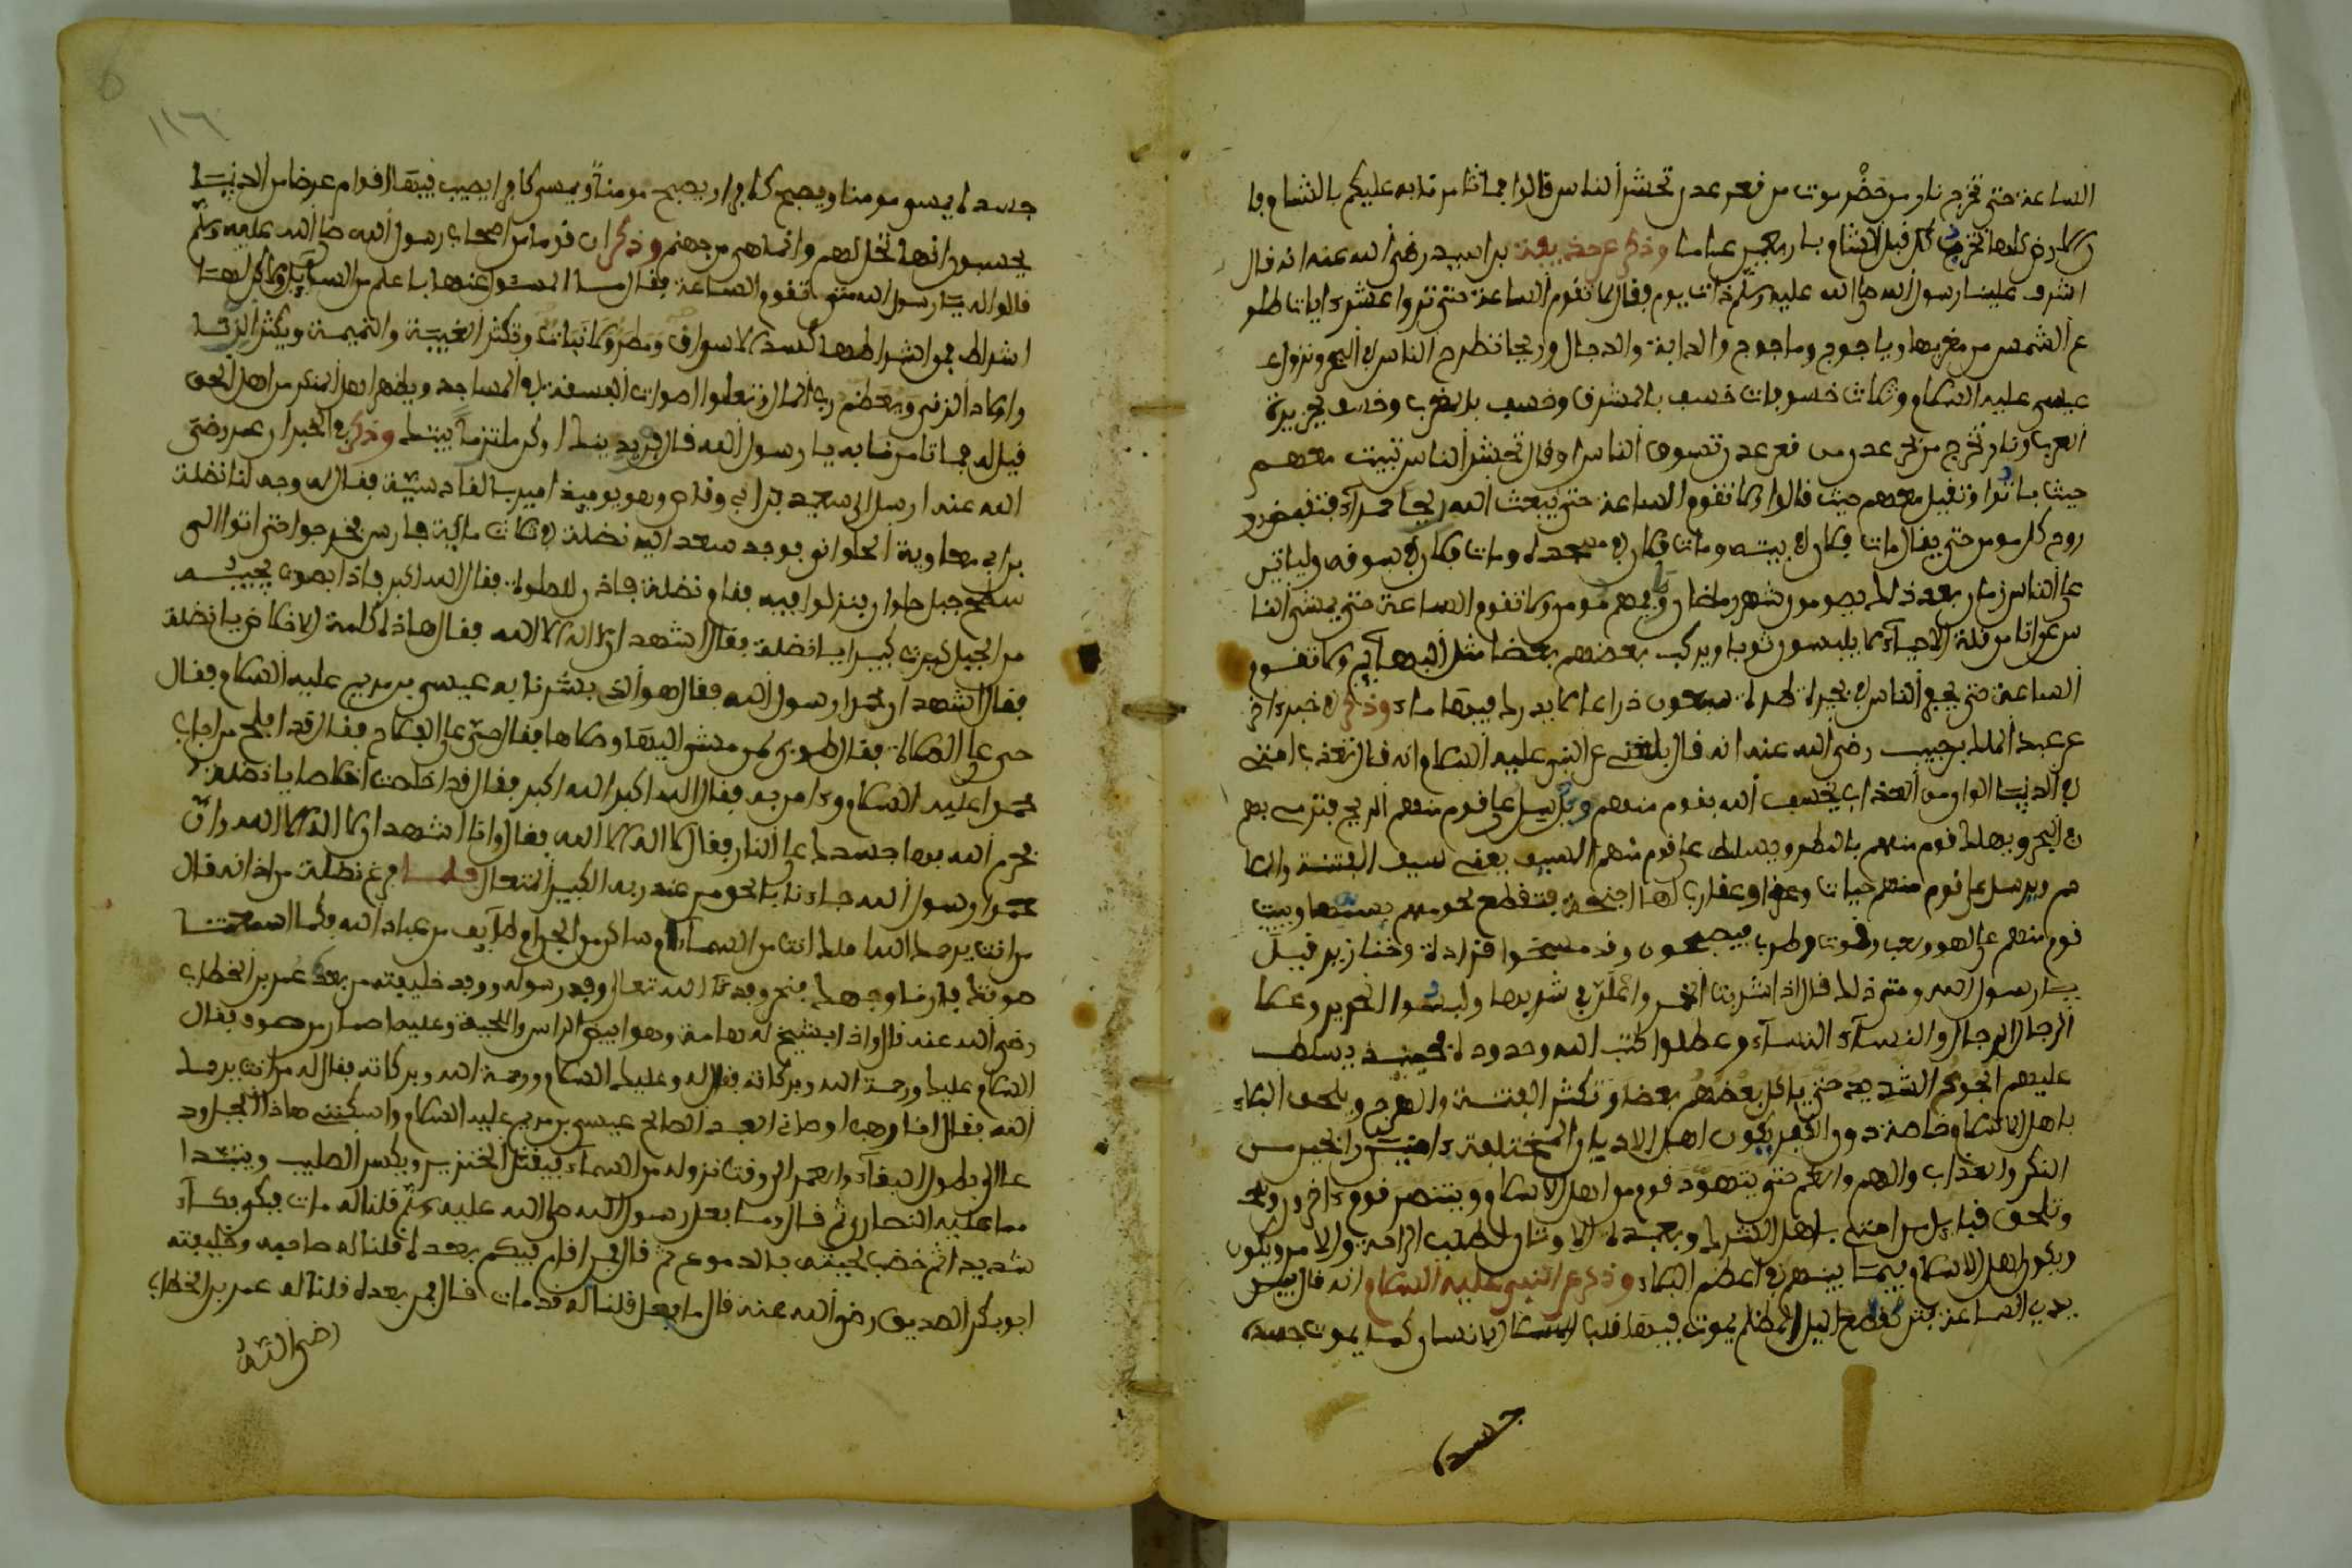 الساعة حتى تخرج نار من حضرموت من قعر عدن تحشر الناس قالوا بما تامرنا به عليكم بالشام وما
وذكر عن حذيفة بن اسيد رضي الله عنه انه قال
اشرف علينا رسول الله صلى الله عليه وسلم ذات يوم وقال لا تقوم الساعة حتى تروا عشر ءايات طلو
ع الشمس من مغربها وياجوج وماجوج والدابة والدجال وريحا تطرح الناس في البحر ونزول
عيسى عليه السلام وثلاث خسوفات خسف بالمشرق وخسف بالمغرب وخسف بجزيرة
العرب ونار تخرج من قعر عدن تسوق الناس او قال تحشر الناس تبيت معهم
حيث باتوا وتقيل معهم حيث قالوا ولا تقوم الساعة حتى يبعث الله ريحا حمراء فتقبض
روح كل مومن حتى يقال مات فلان في بيته ومات فلان في مسجده ومات فلان في سوقه ولياتين
على الناس زمان بعد ذلك يصومون شهر رمضان وما فيهم مومن ولا تقوم الساعة حتى يمشي النا
س عراتا من قلة الحياء لا يلبسون ثوبا ويركب بعضهم بعضا مثل البهائم ولا تقوم
الساعة حتى يجمع الناس في بحيرة طولها سبعون ذراعا لا يدرك فيها ماء وذكر في خبر ءاخر
عن عبد الملك بن حبيب رضي الله عنه انه قال بلغني عن النبي عليه السلام انه قال تعذب امتي
في الدنيا الوان من العذاب يخسف الله بقوم منهم ويرسل على قوم منهم الريح فترمي بهم
في البحر ويهلك قوم منهم بالمطر ويسلط على قوم منهم السيف يعني سيف الفتنة
ويرسل على قوم منهم حيات وعقارب لها اجنحة فتقطع لحومهم ويبيت
قوم منهم على لهو ولعب وطرب فيصبحون وقد مسخوا قرادة وخنازير قيل
يا رسول الله ومتى ذلك قال اذا شربت الخمر ولبسوا الحرير وعلا
الرجال الرجال والنساء النساء وعطلوا كتب الله وحدوده فحينئذ يسلط
عليهم الجوع الشديد حتى ياكل بعضهم بعضا وتكثر الفتنة والهرج ويلحق البلاء
باهل الاسلام خاصة دون الكفر يكون اهل الاديان المختلفة ءامنين
النكر والعذاب والهم والغم حتى يتهود قوم من اهل الاسلام ويتنصر قوم ءاخرون
وتلحق قبائل من امتي باهل الشرك وبعبدة الاوثان لطلب الراحة والامن ويكون
ويكون اهل الاسلام فيما بينهم في اعظم البلاء وذكر عن النبي عليه السلام انه قال
يدي الساعة فتن كقطع اليل المظلم يموت فيها قلب الانسان كما يموت جسده
جسده
١١٦
جسده يمسي مومنا ويصبح كافرا ويصبح مومنا ويمسي كافرا يصيب فيها اقوام عرضا من الدنيا
يحسبون انها تحل لهم وانما هي من جهنم وذكر ان قوما من اصحاب رسول الله صلى الله عليه وسلم
قالوا له يا رسول الله متى تقوم الساعة فقال ما المسئول عنها باعلم من السائل ولكن لها
اشراط فمن اشراطها كساد الاسواق ومطر ولا نبات وتكثر الغيبة والنميمة ويكثر الزنا
واولاد الزنى ويعظم رب المال وتعلوا اصوات الفسقة في المساجد ويظهر اهل المنكر على اهل الحق
قيل له بما تامرنا به يا رسول الله قال فر بدينك وكن ملتزما بيتك وذكر في الخبر ان عمر رضي
الله عنه ارسل الى سعيد بن ابي وقاص وهو يوميذ امير بالقادسية فقال له وجه لنا نضلة
بن ابي معاوية الى حلوان فوجه سعد اليه نضلة في ثلاث ماية فارس فخرجوا حتى اتوا الى
سفح جبل حلوان فنزلوا فيه فقام نضلة فاذن للصلوة فقال الله اكبر فاذا بصوت يجيبه
من الجبل كبرت كبيرا يا نضلة فقال اشهد ان لا اله الا الله فقال هاذه كلمة الاخلاص يا نضلة
فقال اشهد ان محمدا رسول الله فقال هو الذي بشرنا به عيسى بن مريم عليه السلام وقال
حي على الصلاة فقال طوبى لمن مشى اليها وصلاها فقال حي على الفلاح فقال قد افلح من اجاب
محمدا عليه السلام ومن امن به فقال الله اكبر الله اكبر فقال قد اخلصت اخلاصا يا نضلة
فحرم الله بها جسدك على النار فقال لا اله الا الله فقال وانا اشهد ان لا اله الا الله وان
محمدا رسول الله جاءنا بالحق من عند ربه الكبير المتعال فلما فرغ نضلة من اذانه قال
من انت يرحمك الله املك انت من السماء ام ساكن من الجن ام طائف من عباد الله فكما اسمعتنا
صوتك فارنا وجهك فنحن وفد الله تعالى وفد رسوله ووفد خليفته من بعده عمر بن الخطاب
رضي الله عنه قال واذا بشيخ له هامة وهو ابيض الراس واللحية وعليه اطمار من صوف فقال
السلام عليكم ورحمة الله وبركاته فقال له وعليك السلام ورحمة الله وبركاته فقال له من انت يرحمك
الله فقال انا وصي العبد الصالح عيسى بن مريم عليه السلام واسكنني هاذا الجبل ود
عا لي بطول البقاء والعمر الى وقت نزوله من السماء فيقتل الخنزير ويكسر الصليب ويتبرا
مما عليه النصارى ثم قال وما فعل رسول الله صلى الله عليه وسلم قلنا له مات فبكى بكاء
شديدا ثم خضب لحيته بالدموع ثم قال فمن اقام فيكم بعده قلنا له صاحبه وخليفته
ابو بكر الصديق رضي الله عنه قال ما فعل قلنا له قد مات قال فمن بعده قلنا له عمر بن الخطاب
رضي الله